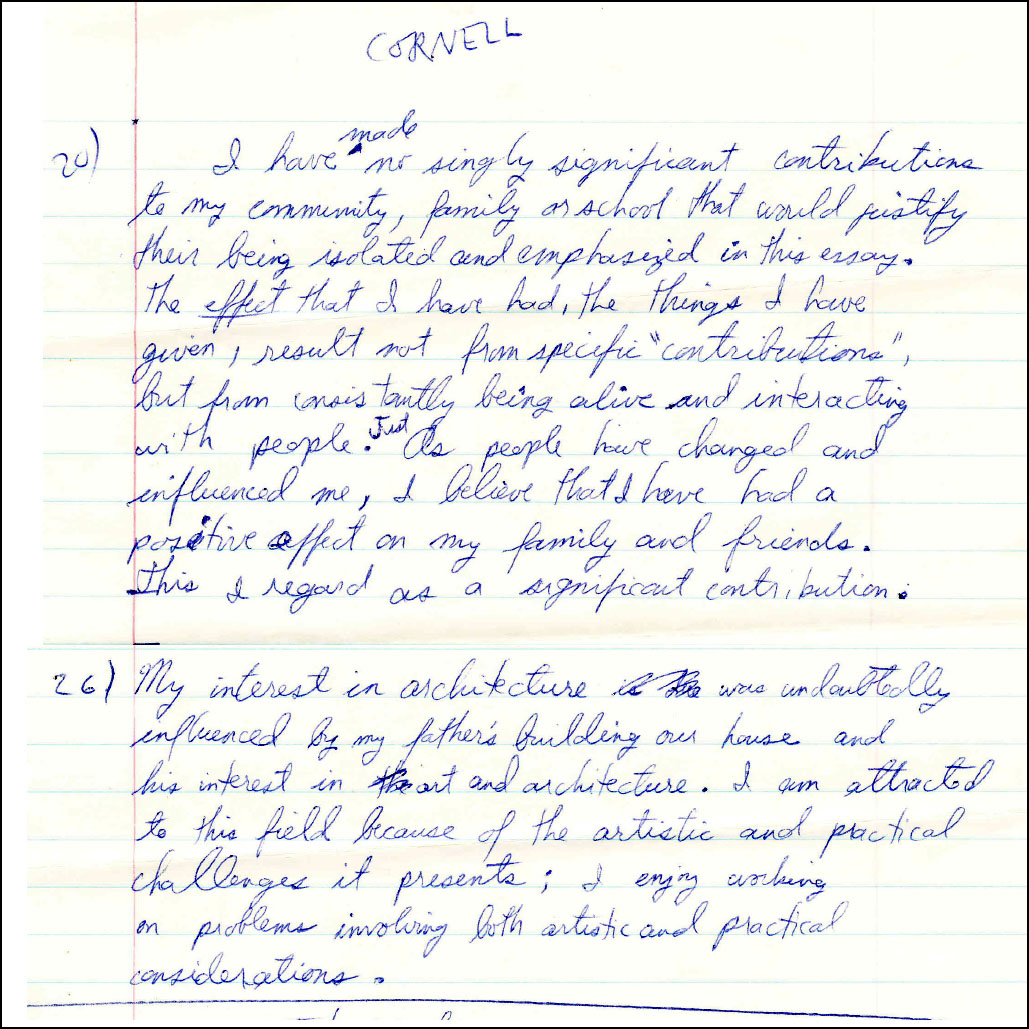 CORNELL
20) I have made no singly significant contributions
to my community, family or school that would justify
their being isolated and emphasized in this essay.
The effect that I have had, the things I have
given, result not from specific "contributions",
but from consistantly being alive and interacting
with people. Just As people have changed and
influenced me, I believe that I have had a
positive effect on my family and friends.
This I regard as a significant contribution.
26) My interest in architecture was undoubtedly
influenced by my father's building our house and
his interest in art and architecture. I am attracted
to this field because of the artistic and practical
challenges it presents; I enjoy working
on problems involving both artistic and practical
considerations.